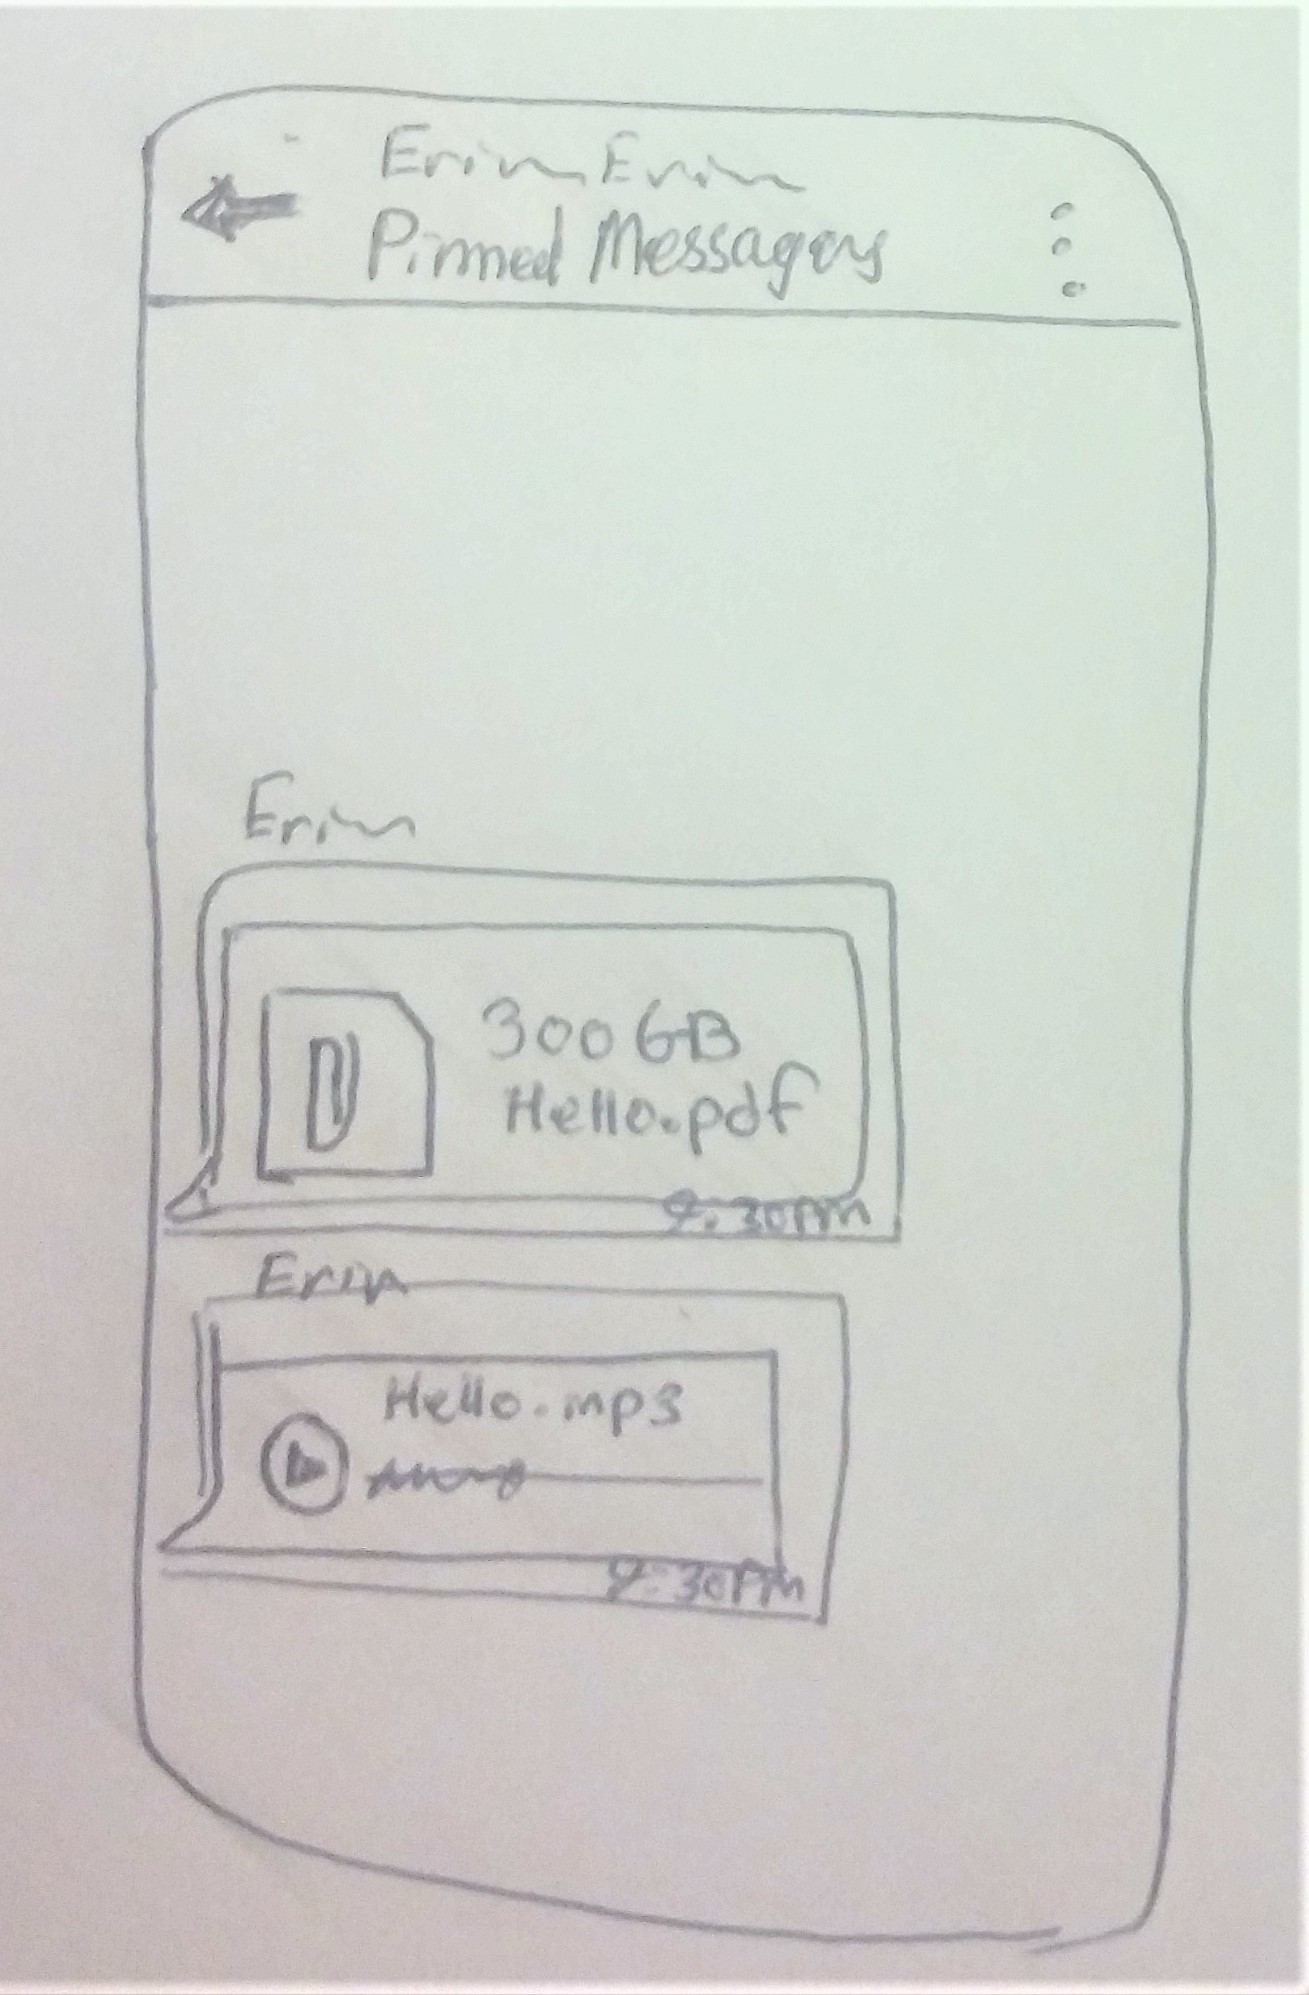 Erin Erin
Pinned Messages
Erin
300 GB
Hello.pdf
9:30pm
Erin
Hello.mp3
9:30pm